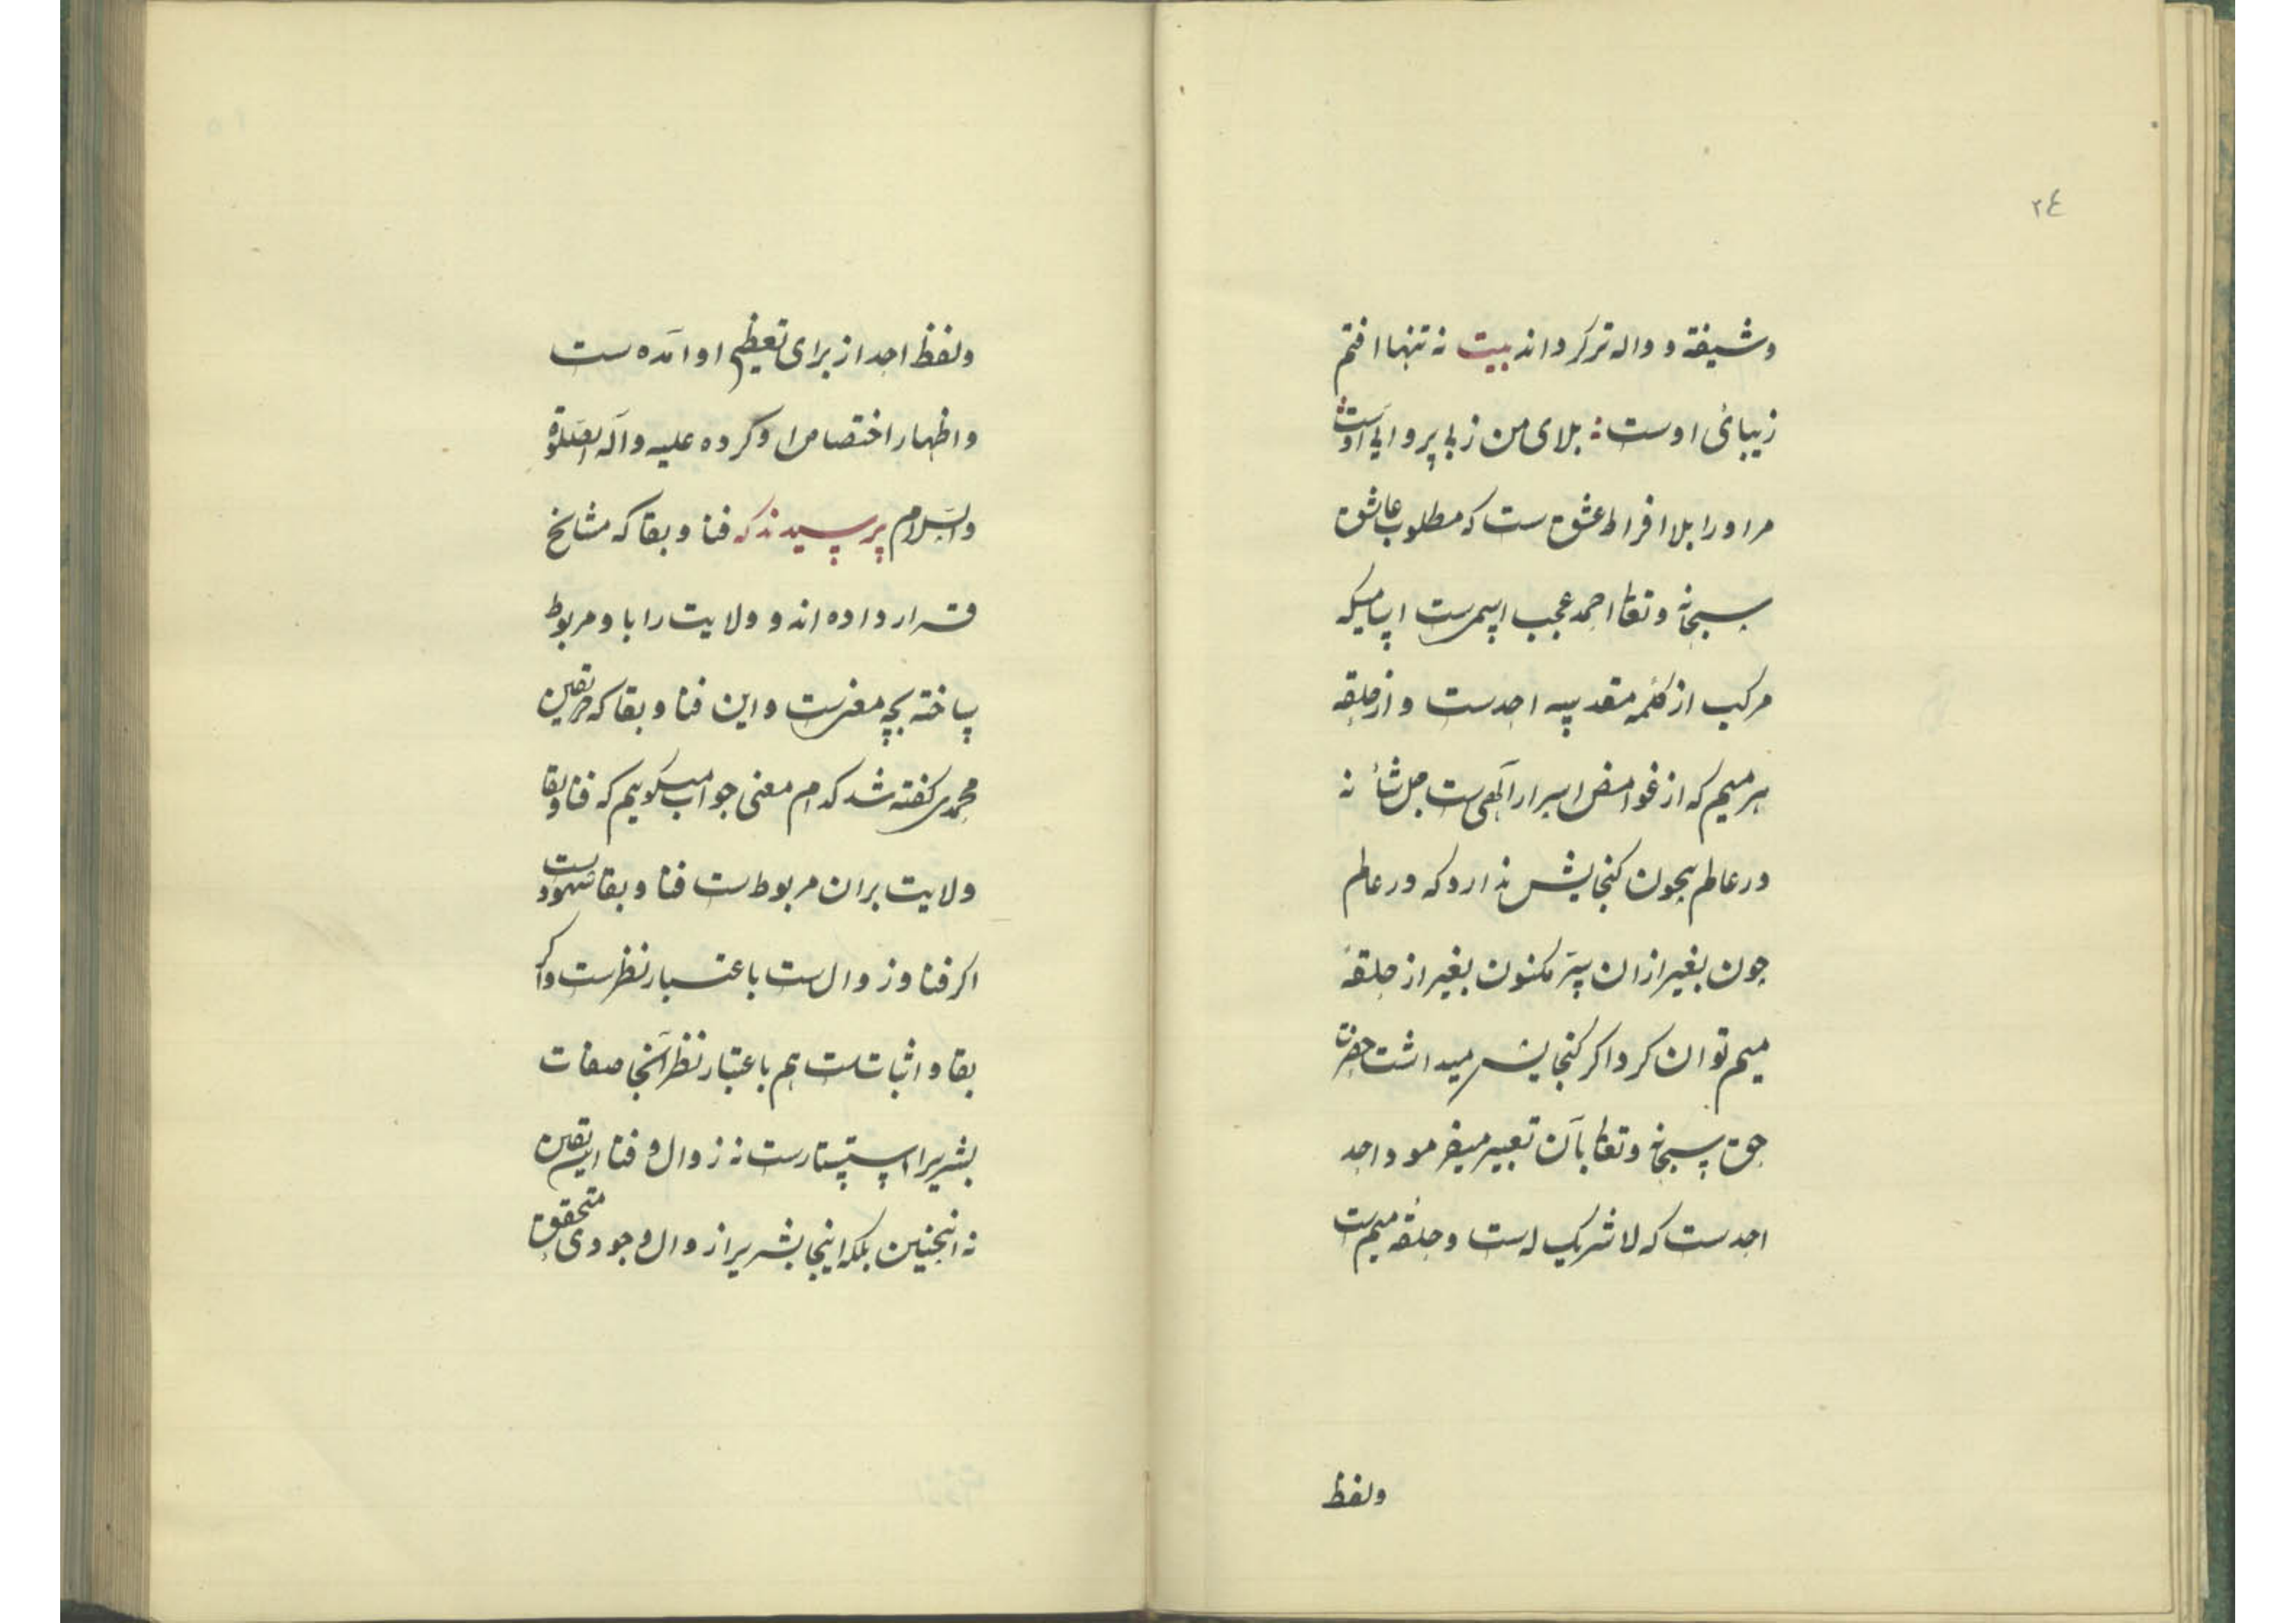 ٢٤
وشیفته و واله تر کرداند بیت نه تنها افتم
زیبائی اوست ؛ بلای من زبی پروایی اوست
مراورا بلا افراط عشق ست که مطلوب عاشق
سبحانه وتعالی احمد عجب اسمی ست اسامیکه
مرکب از کلمه مقدسه احدست و از حلقه
سر میم که از غوامض اسرار الٓهی ست جل شانه
در عالم بیچون کنجایش ندارد که در عالم
چون بغیر ازان سرّ مکنون بغیر از حلقهٔ
میم توان کرد اکر کنجایش میداشت حضرت
حق سبحانه وتعالی بآن تعبیر میفرمود احد
احدست که لا شریک له ست و حلقهٔ میم ست
ولفظ
ولفظ احد از برای تعظیم او آمده ست
واظهار اختصاص او کرده علیه وآله الصّلوة
والسّلام پرسیدند که فنا و بقا که مشایخ
قرار داده اند و ولایت را با و مربوط
ساخته بچه معنی ست و این فنا و بقا که در تعین
محمدی کفته شد کدام معنی جواب میکوییم که فنا و بقا
ولایت بران مربوط ست فنا و بقا شهودیست
اکر فنا و زوال ست باعتبار نظرست واکر
بقا و اثبات ست هم باعتبار نظر آنجا صفات
بشریرا استتارست نه زوال و فنا این تعین
نه انچنین بلکه اینجا بشریرا زوال وجودی متحقق